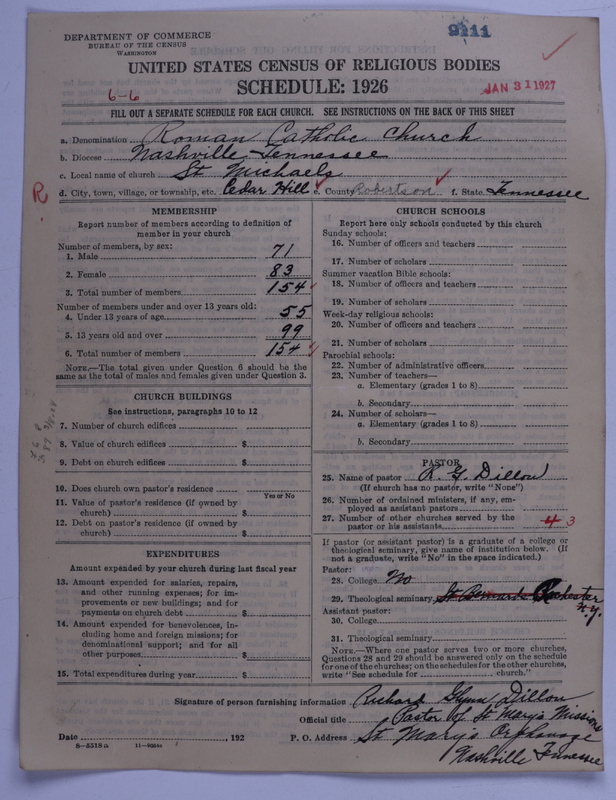 DEPARTMENT OF COMMERCE
BUREAU OF THE CENSUS
WASHINGTON
9211
UNITED STATES CENSUS OF RELIGIOUS BODIES
SCHEDULE: 1926
6-6
JAN 31 1927
FILL OUT A SEPARATE SCHEDULE FOR EACH CHURCH. SEE INSTRUCTIONS ON THE BACK OF THIS SHEET
a. Denomination Roman Catholic Church
b. Diocese Nashville Tennessee
c. Local name of church St Michaels
R d. City, town, village, or township, etc. Cedar Hill e. County Robertson f. State Tennessee
MEMBERSHIP
Report number of members according to definition of
member in your church
Number of members, by sex:
1. Male 71
2. Female 83
3. Total number of members 154
Number of members under and over 13 years old:
4. Under 13 years of age 55
5. 13 years old and over 99
6. Total number of members 154
NOTE.—The total given under Question 6 should be
same as the total of males and females given under Question 3.
CHURCH BUILDINGS
See instructions, paragraphs 10 to 12
7. Number of church edifices
8. Value of church edifices $
9. Debt on church edifices $
10. Does church own pastor's residence
Yes or No
11. Value of pastor's residence (if owned by
church) $
12. Debt on pastor's residence (if owned by
church) $
EXPENDITURES
Amount expended by your church during last fiscal year
13. Amount expended for salaries, repairs,
and other running expenses; for im-
provements or new buildings; and for
payments on church debt $
14. Amount expended for benevolences, in-
cluding home and foreign missions; for
denominational support; and for all
other purposes $
15. Total expenditures during year $
CHURCH SCHOOLS
Report here only schools conducted by this church
Sunday schools:
16. Number of officers and teachers
17. Number of scholars
Summer vacation Bible schools:
18. Number of officers and teachers
19. Number of scholars
Week-day religious schools:
20. Number of officers and teachers
21. Number of scholars
Parochial schools:
22. Number of administrative officers
23. Number of teachers—
a. Elementary (grades 1 to 8)
b. Secondary
24. Number of scholars—
a. Elementary (grades 1 to 8)
b. Secondary
PASTOR
25. Name of pastor R. G. Dillon
(If church has no pastor, write "None")
26. Number of ordained ministers, if any, em-
ployed as assistant pastors
27. Number of other churches served by the
pastor or his assistants 4 3
If pastor (or assistant pastor) is a graduate of a college or
theological seminary, give name of institution below. (If
not a graduate, write "No" in the space indicated.)
Pastor:
28. College No
29. Theological seminary St Bernards Rochester
N.Y.
Assistant pastor:
30. College
31. Theological seminary
NOTE.—Where one pastor serves two or more churches,
Questions 28 and 29 should be answered only on the schedule
for one of the churches; on the schedules for the other churches,
write "See schedule for church."
Signature of person furnishing information Richard Glynn Dillon
Official title Pastor of St Mary's Missions
Date , 192 P. O. Address St Mary's Orphanage
Nashville Tennessee
8—5518 a